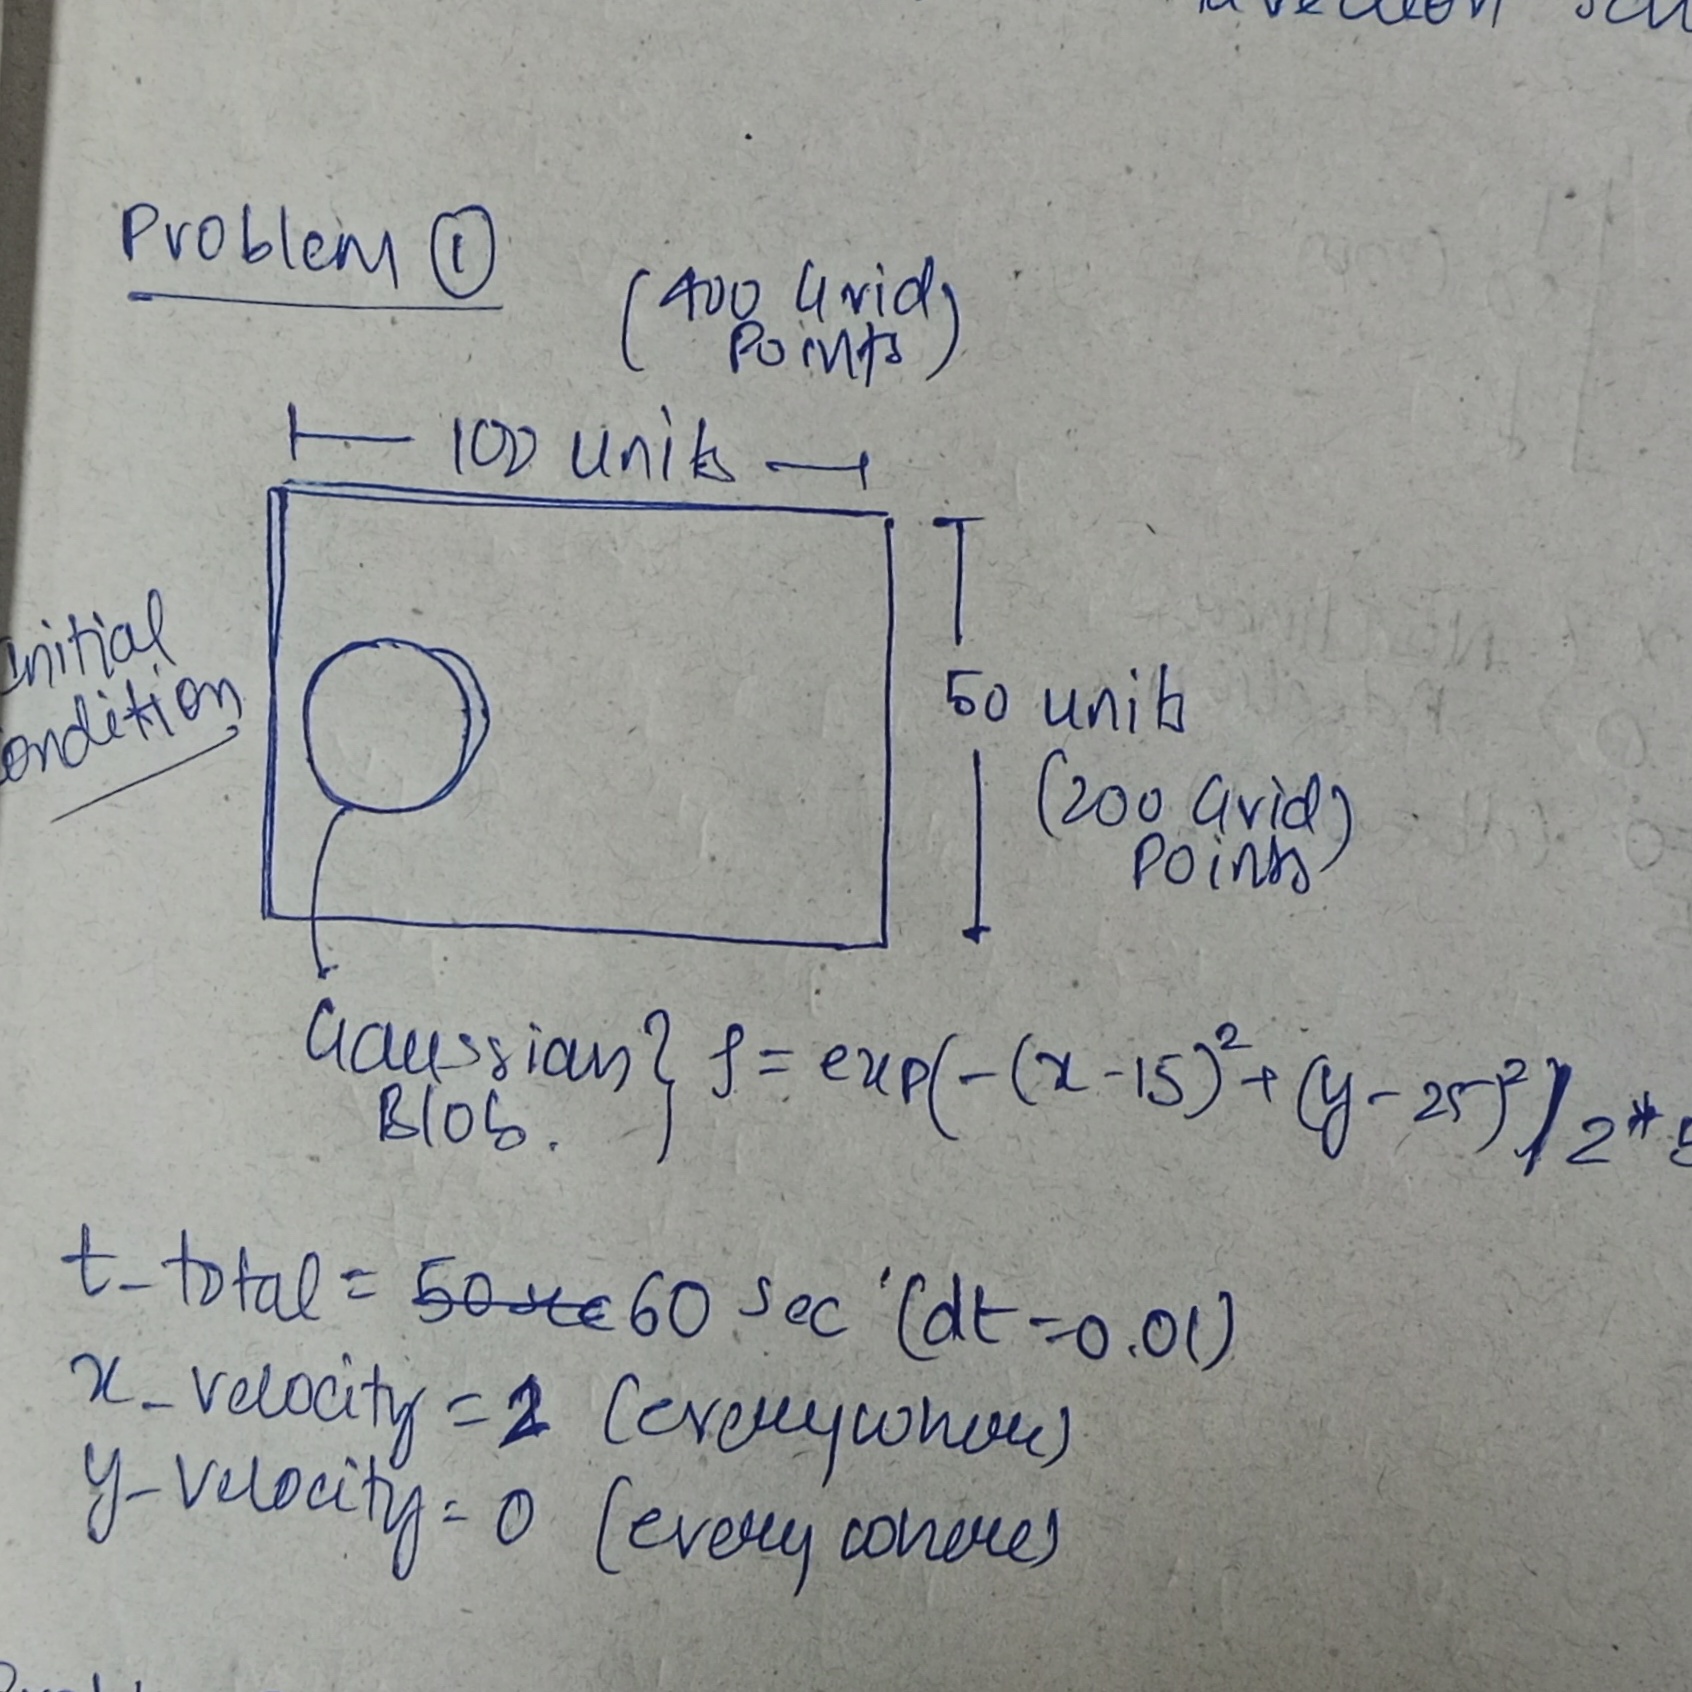 Problem ①
(400 Grid
Points)
100 units
50 units
(200 Grid
Points)
Initial
Condition
Gaussian } ρ = exp(-(x-15)²+(y-25)²)/2*
Blob.
t_total = 60 sec (dt=0.01)
x_velocity = (everywhere)
y-velocity = 0 (everywhere)